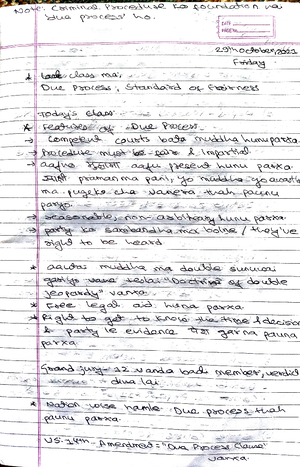 Note: Criminal Procedure ko foundation na
due process ho.
DATE
PAGE NO.
29th October, 2021
Friday
class ma,
Due Process, Standard of Fairness
Today's class
* Features of Due Process
→ Competent courts bata muddha hunuparxa.
→ Procedure must be fair & impartial
→ aafno aafu present hunu parxa.
praman ma pani, yo muddha yo awastha
ma pugeko cha vanera thah paunu
paryo.
→ reasonable, non-arbitrary hunu parxa.
→ party ko sambandha ma bolne / they've
right to be heard.
* muddha ma double sunuwai
"Doctrine of double
jeopardy" vanxa.
* Free legal aid huna parxa
* Right to get to know the & decision
& party le evidence garna pauna
parxa.
Grand jury - 12 vanda badi member, verdict
dina lai
* Due process thah
paunu parxa.
US-14th Amendment: "Due Process Clause"
vanxa.